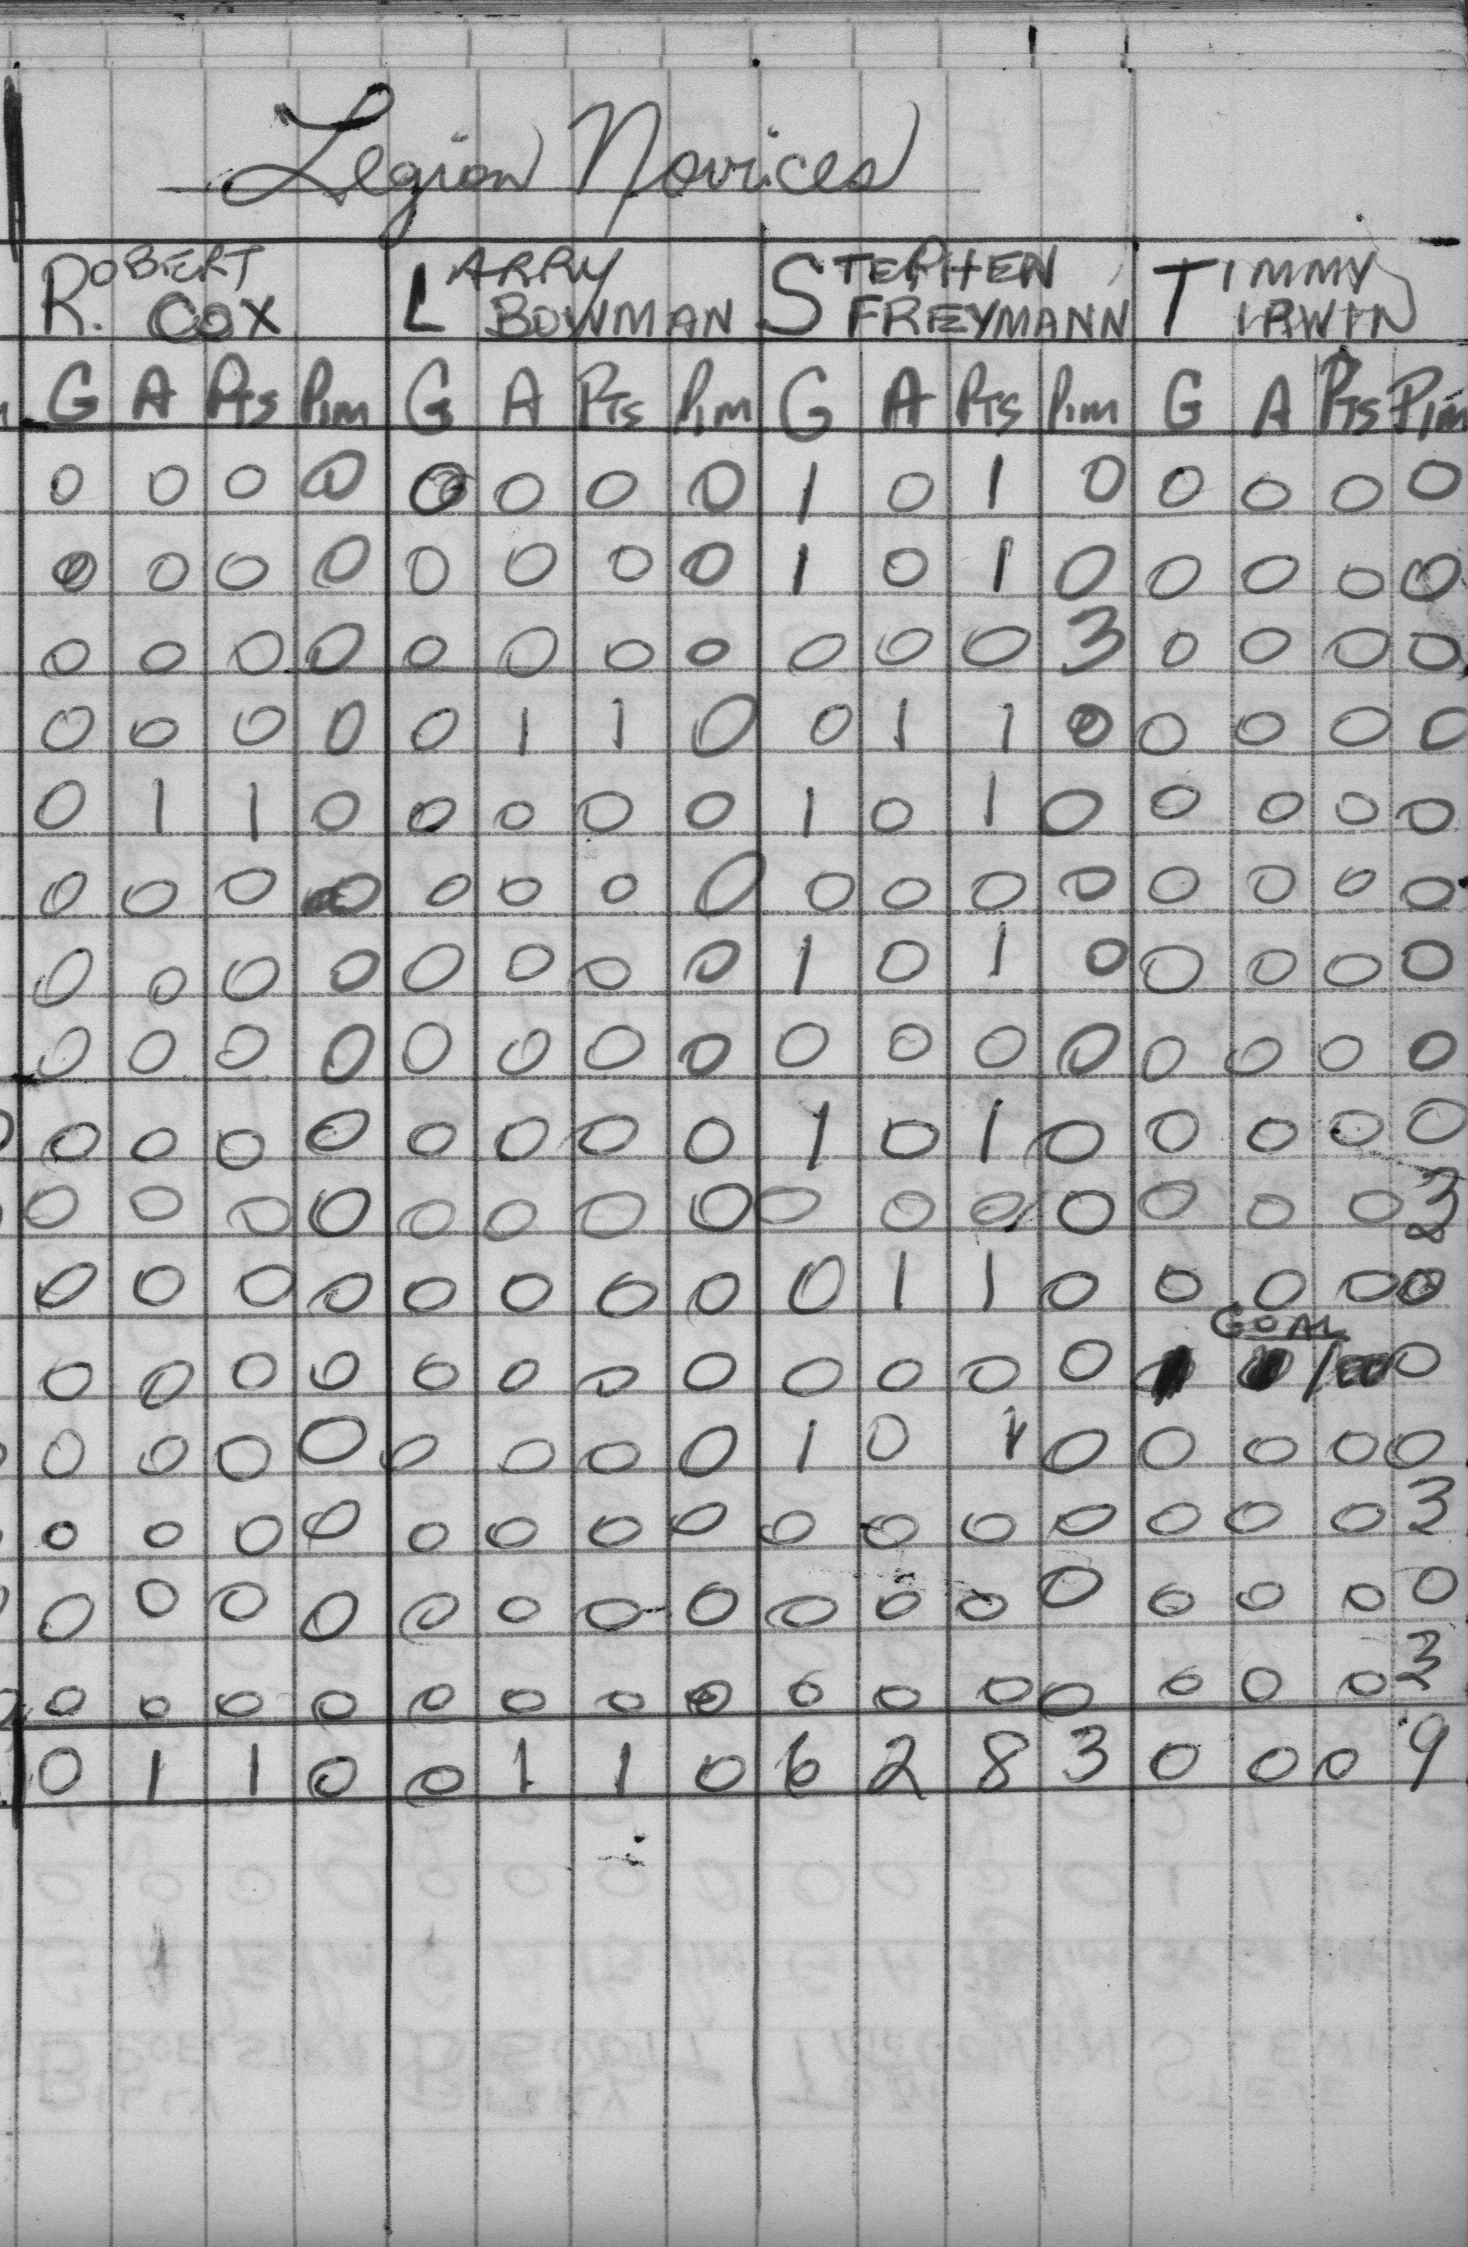 Legion Novices
ROBERT LARRY STEPHEN TIMMY
R. COX BOWMAN FREYMANN IRWIN
G A Pts Pim G A Pts Pim G A Pts Pim G A Pts Pim
0 0 0 0 0 0 0 0 1 0 1 0 0 0 0 0
0 0 0 0 0 0 0 0 1 0 1 0 0 0 0 0
0 0 0 0 0 0 0 0 0 0 0 3 0 0 0 0
0 0 0 0 0 1 1 0 0 1 1 0 0 0 0 0
0 1 1 0 0 0 0 0 1 0 1 0 0 0 0 0
0 0 0 0 0 0 0 0 0 0 0 0 0 0 0 0
0 0 0 0 0 0 0 0 1 0 1 0 0 0 0 0
0 0 0 0 0 0 0 0 0 0 0 0 0 0 0 0
0 0 0 0 0 0 0 0 1 0 1 0 0 0 0 0
0 0 0 0 0 0 0 0 0 0 0 0 0 0 0 3
0 0 0 0 0 0 0 0 0 1 1 0 0 0 0 0
GOAL
0 0 0 0 0 0 0 0 0 0 0 0 0
0 0 0 0 0 0 0 0 1 0 1 0 0 0 0 0
0 0 0 0 0 0 0 0 0 0 0 0 0 0 0 3
0 0 0 0 0 0 0 0 0 0 0 0 0 0 0 0
0 0 0 0 0 0 0 0 0 0 0 0 0 0 0 3
0 1 1 0 0 1 1 0 6 2 8 3 0 0 0 9